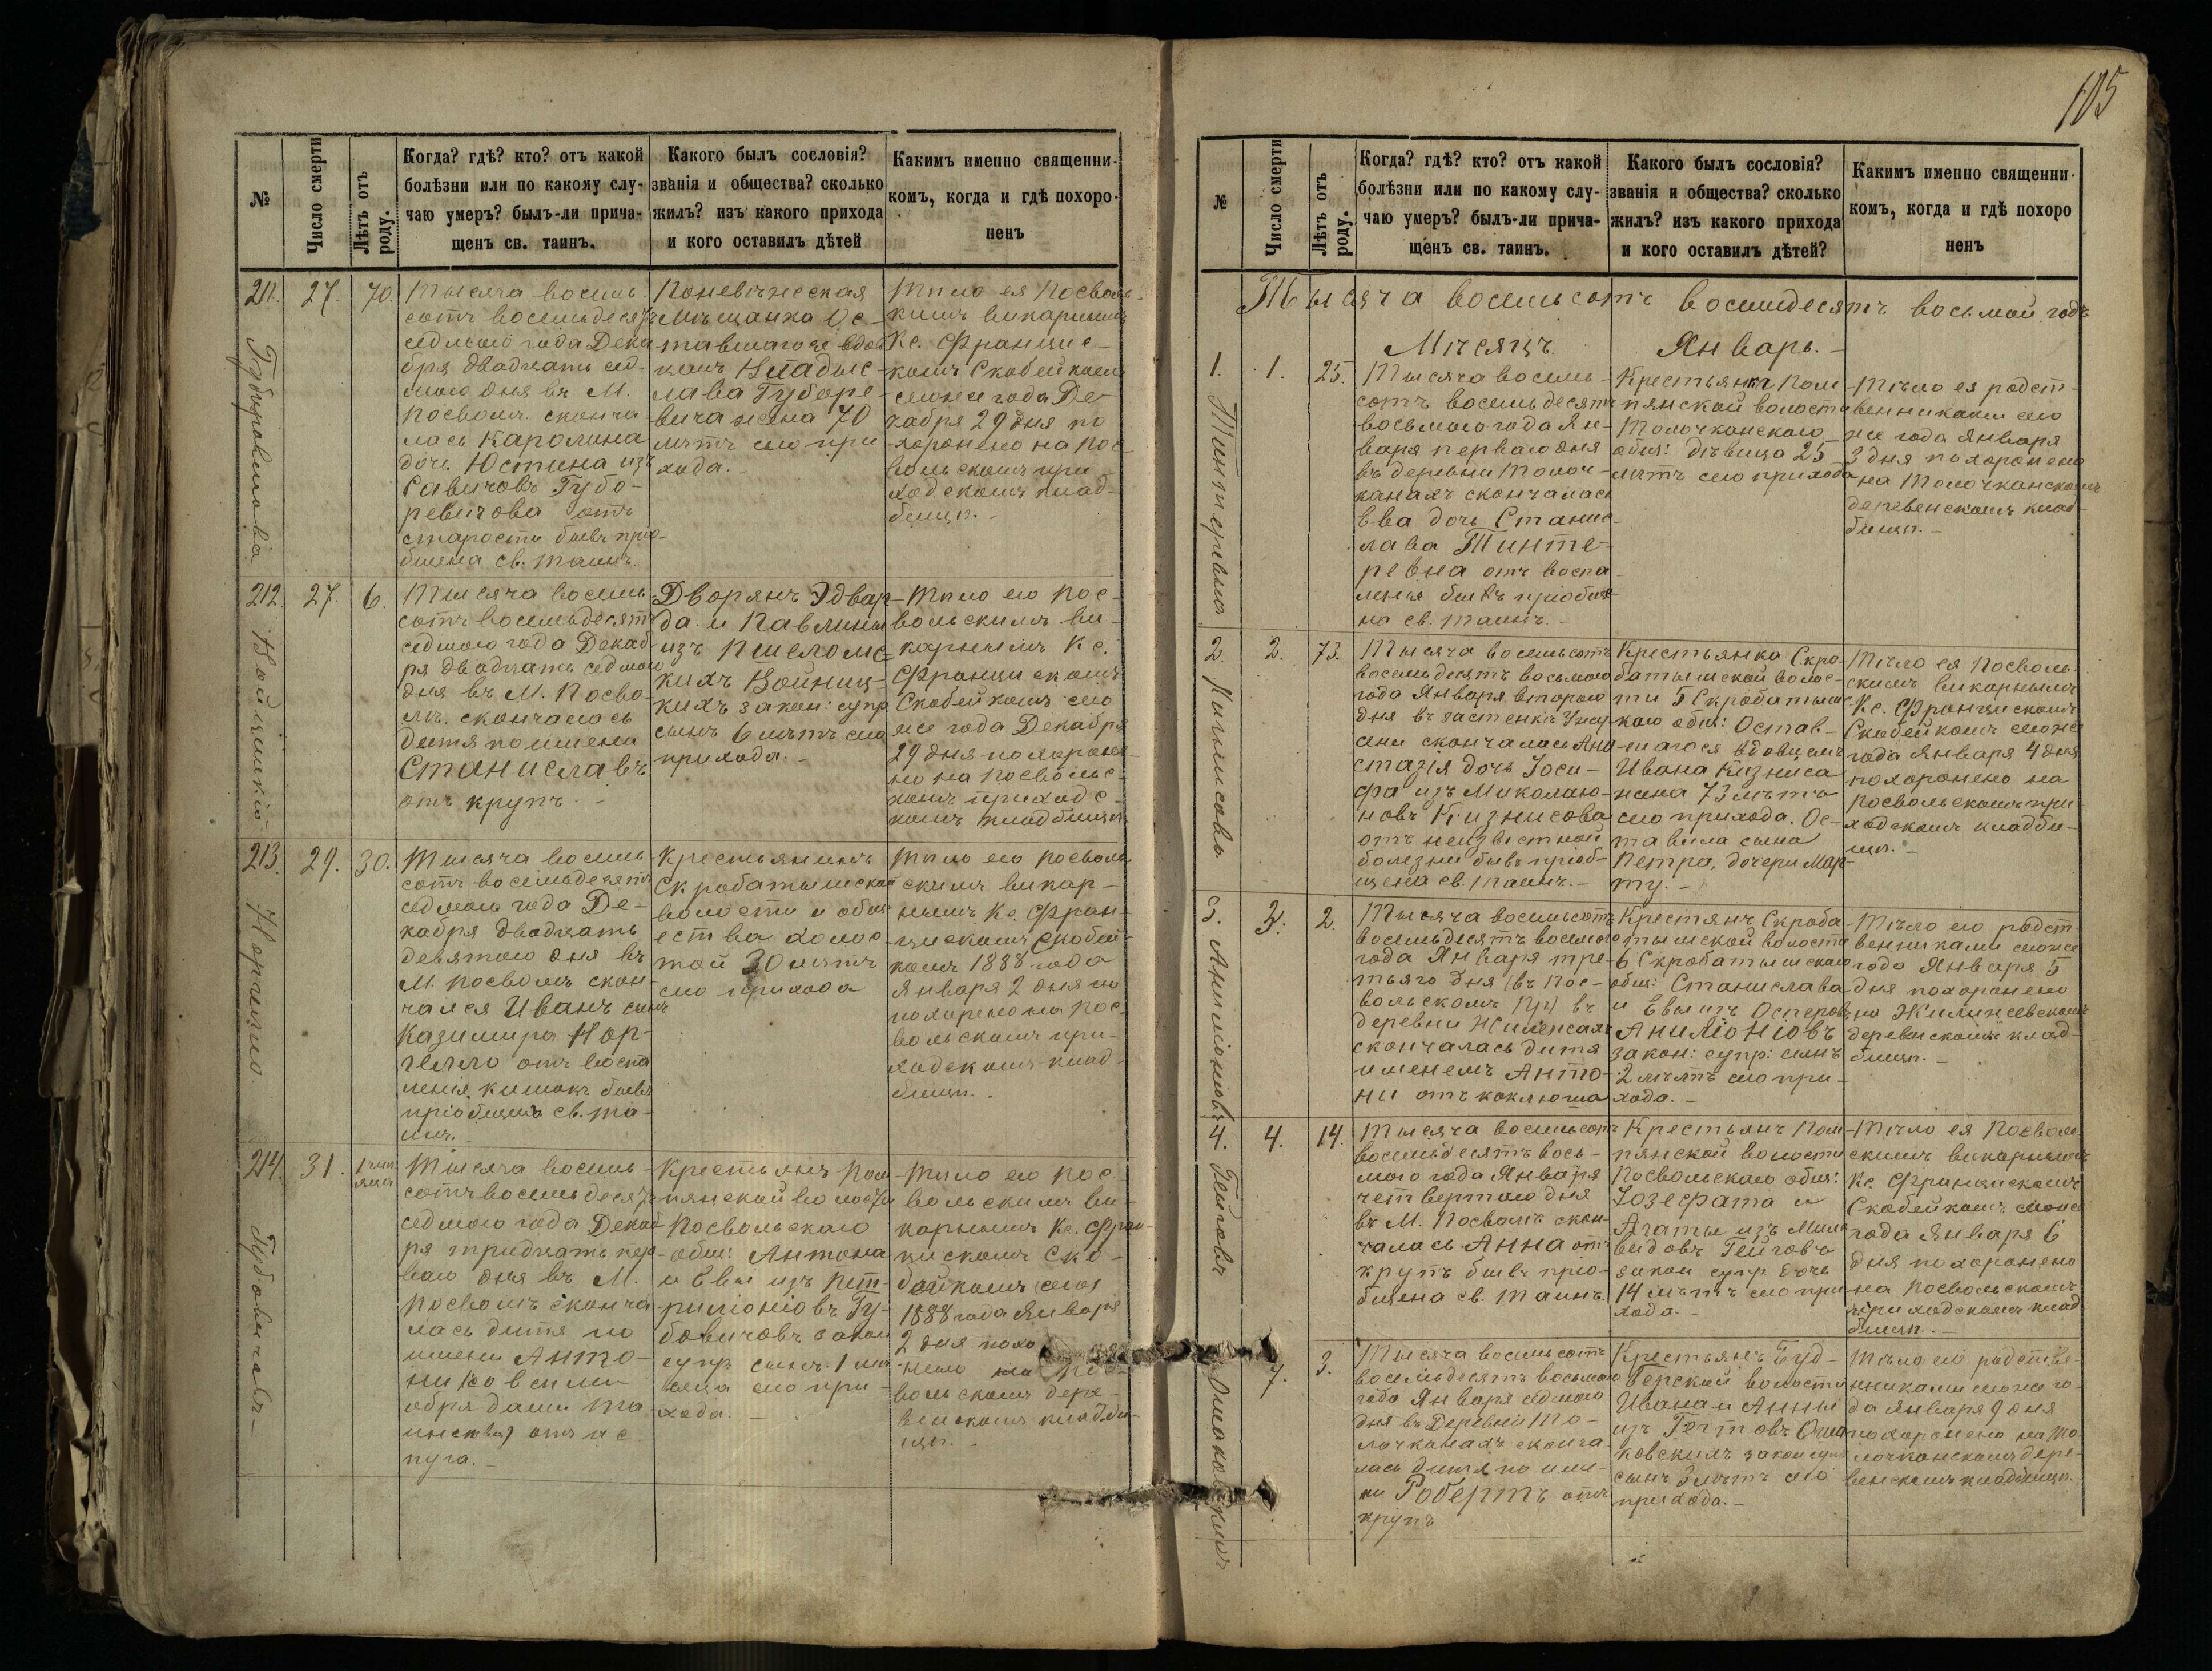 105
№
Число смерти
Лѣтъ отъ роду.
Когда? гдѣ? кто? отъ какой
болѣзни или по какому слу-
чаю умеръ? былъ-ли прича-
щенъ св. таинъ.
Какого былъ сословія?
званія и общества? сколько
жилъ? изъ какого прихода
и кого оставилъ дѣтей
Какимъ именно священни-
комъ, когда и гдѣ похоро-
ненъ
211.
27.
70.
Тысяча восемь
сотъ восемьдесятъ
седмого года Дека
бря двадцать сед-
мого дня въ М.
Посволѣ сконча
лась Каролина
дочь Юстина изъ
Савичовъ Губо-
ревичова отъ
старости бывъ прио-
бщена св. таинъ.
Поневѣжеская
Мѣщанка Ос-
тавшагося вдов
цомъ Владис-
лава Губоре-
вича жена 70
лѣтъ сего при
хода. -
Тѣло ея Посволь-
скимъ викарнымъ
Кс. Францис-
комъ Скобейкомъ
сегоже года Де-
кабря 29 дня по
хоронено на Пос-
вольскомъ при-
ходскомъ клад-
бищѣ. -
212.
27.
6.
Тысяча восемь
сотъ восемьдесятъ
седмого года Декаб
ря двадцать седмого
дня въ М. Посво-
лѣ скончалось
дитя по имени
Станиславъ
отъ крупъ. -
Дворянъ Эдвар-
да и Павлины
изъ
кихъ Войниц-
кихъ закон: супр.
сынъ 6 лѣтъ сего
прихода. -
Тѣло его Пос-
вольскимъ ви-
карнымъ Кс.
Францискомъ
Скобейкомъ сего
же года Декабря
29 дня похороне-
но на Посвольс-
комъ приходс-
комъ кладбищѣ.
213.
29.
30.
Тысяча восемь
сотъ восемьдесятъ
седмого года Де-
кабря двадцать
девятого дня въ
М. Посволѣ скон-
чался Иванъ сынъ
Казимира Нор-
гелло отъ воспа
ленія кишокъ бывъ
пріобщенъ св. та-
инъ.
Крестьянинъ
Скробатышской
волости и общ-
ества холос-
той 30 лѣтъ
сего прихода
Тѣло его Посволь-
скимъ викар-
нымъ Кс. Фран-
цискомъ Скобей-
комъ 1888 года
Января 2 дня по
похоренено на Пос-
вольскомъ при-
ходскомъ клад-
бищѣ. -
214.
31.
Тысяча восемь
сотъ восемьдесятъ
седмого года Декаб
ря тридцать пер-
вого дня въ М.
Посволѣ сконча
лась дитя по
имени Анто-
ни со всѣми
обрядами та-
инства отъ ис-
пуга. -
Крестьянъ Пом
пянской волости
Посвольскаго
общ: Антона
и Евы изъ Пет-
рилионіовъ Гу-
бовичовъ закон
супр. сынъ 1 мѣ-
сяца сего при-
хода. -
Тѣло его Пос-
вольскимъ ви-
карнымъ Кс. Фран-
цискомъ Ско-
бейкомъ
1888 года Января
2 дня похо
нено на Пос-
вольскомъ дере-
венскомъ кладби-
щѣ. -
№
Число смерти
Лѣтъ отъ роду.
Когда? гдѣ? кто? отъ какой
болѣзни или по какому слу-
чаю умеръ? былъ-ли прича-
щенъ св. таинъ.
Какого былъ сословія?
званія и общества? сколько
жилъ? изъ какого прихода
и кого оставилъ дѣтей?
Какимъ именно священни-
комъ, когда и гдѣ похоро
ненъ
Тысяча восемьсотъ восемдесятъ восьмой годъ
Мѣсяцъ Январь. -
1.
1.
25.
Тысяча восемь-
сотъ восемьдесятъ
восьмого года Ян-
варя первого дня
въ деревни Толоч-
канахъ скончалась
Ева дочь Станис-
лава Тинте-
ревна отъ воспа-
ленія бывъ пріобще-
на св. таинъ. -
Крестьянка Пом
пянской волости
Толочканскаго
общ: дѣвица 25
лѣтъ сего прихода
Тѣло ея родст-
венниками сего
же года Января
3 дня похоронено
на Толочканскомъ
деревенскомъ клад-
бищѣ. -
2.
2.
73.
Тысяча восемьсотъ
восемьдесятъ восьмого
года Января второго
дня въ застенкѣ
скончалась Ана-
стазія дочь Іоси-
фа изъ Миколаю-
новъ Кизнисова
отъ неизвѣстной
болезни бывъ пріоб-
щена св. таинъ. -
Крестьянка Скро-
батышской волос-
ти 5 Скробатыш
каго общ: Остав-
шагося вдовцомъ
Ивана Кизниса
жена 73 лѣта
сего прихода. Ос-
тавила сына
Петра, дочери Мар-
ту. -
Тѣло ея Посволь-
скимъ викарнымъ
Кс. Францискомъ
Скобейкомъ сегоже
года Января 4 дня
похоронено на
Посвольскомъ при-
ходскомъ кладби-
щѣ. -
3.
3.
2.
Тысяча восемьсотъ
восемьдесятъ восьмого
года Января тре-
тьяго дня (въ Пос-
вольскомъ Пр) въ
деревни
скончалась дитя
именемъ Анто-
ни отъ коклюша
Крестянъ Скроба
тышской волости
6 Скробатышскаго
общ: Станислава
и Евы изъ
Анилюніовъ
закон: супр: сынъ
2 лѣтъ сего при-
хода. -
Тѣло его родст-
венниками сегоже
года Января 5
дня похоронено
на
деревнскомъ клад-
бищѣ. -
4.
4.
14.
Тысяча восемьсотъ
восемьдесятъ вось-
мого года Января
четвертого дня
въ М. Посволѣ скон-
чалась Анна отъ
крупъ бывъ прио-
бщена св. таинъ.
Крестьянъ Пом
пянской волости
Посвольскаго общ:
Іозефата и
Агаты изъ
Гейговъ
закон супр дочь
14 лѣтъ сего при-
хода. -
Тѣло ея Посволь
скимъ викарнымъ
Кс. Францискомъ
Скобейкомъ сегоже
года Января 6
дня похоронено
на Посвольскомъ
приходскомъ клад
бищѣ. -
7.
3.
Тысяча восемьсотъ
восемьдесятъ восьмого
года Января седмого
дня въ Деревни То-
лочканахъ сконча-
лась дитя по име-
ни Робертъ отъ
крупъ
Крестьянъ
волости
Ивана и Анны
изъ
закон супр
сынъ 3 лѣтъ сего
прихода. -
Тѣло его родстве-
нниками сегоже го-
да Января 9 дня
похоронено на То-
лочканскомъ дере-
венскомъ кладбищѣ.